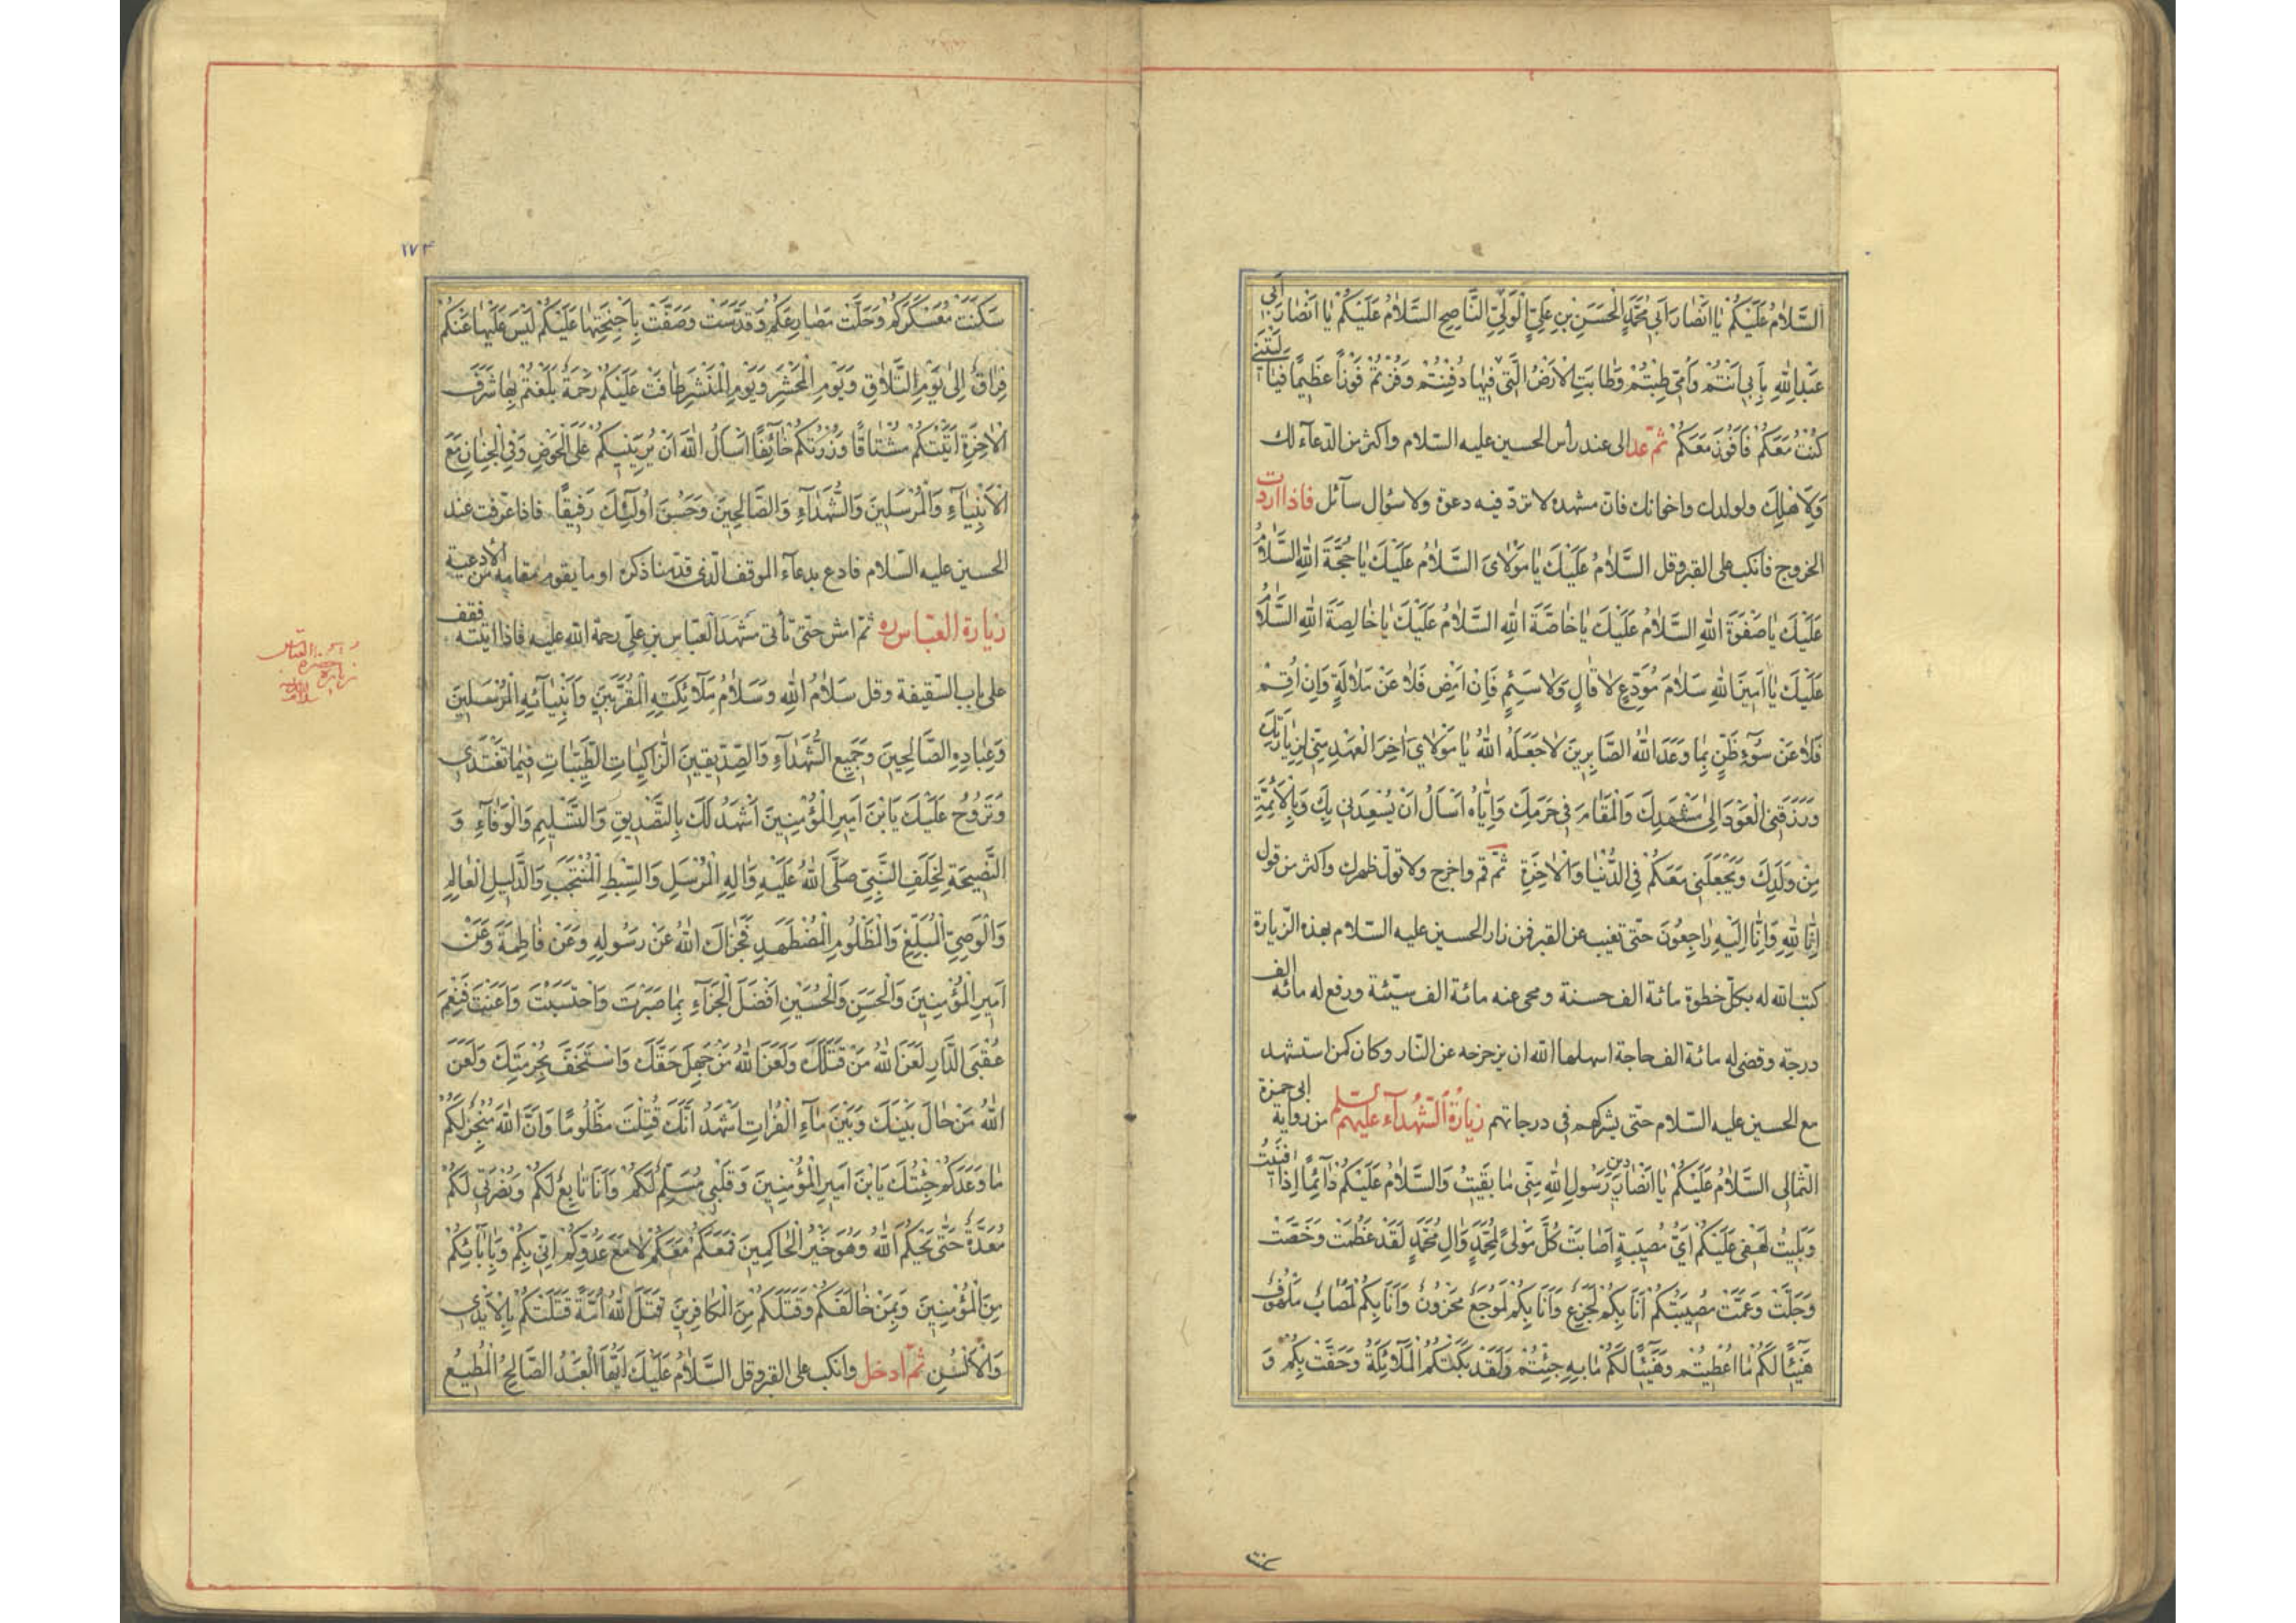 اَلسَّلاٰمُ عَلَيْكُمْ يٰا اَنْصٰارَ اَبي مُحَمَّدٍ الْحَسَنِ بْنِ عَلِيٍّ الْوَلِيِّ النّٰاصِحِ السَّلاٰمُ عَلَيْكُمْ يٰا اَنْصٰارَ اَبي
عَبْدِ اللهِ بِاَبي اَنْتُمْ وَاُمّي طِبْتُمْ وَطٰابَتِ الْاَرْضُ الَّتي فيهٰا دُفِنْتُمْ وَفُزْتُمْ فَوْزاً عَظيماً فَيٰا لَيْتَني
كُنْتُ مَعَكُمْ فَاَفُوزَ مَعَكُمْ ثمّ عد الى عند رأس الحسين عليه السّلام واكثر من الدّعآء لك
وَلِاَهْلِكَ ولولدك واخوانك فانّ مشهده لا تردّ فيه دعوة ولا سؤال سآئل فاذا اردت
الخروج فانكب على القبر وقل السَّلاٰمُ عَلَيْكَ يٰا مَوْلاٰىَ السَّلاٰمُ عَلَيْكَ يٰا حُجَّةَ اللهِ السَّلاٰمُ
عَلَيْكَ يٰا صَفْوَةَ اللهِ السَّلاٰمُ عَلَيْكَ يٰا خٰاصَّةَ اللهِ السَّلاٰمُ عَلَيْكَ يٰا خٰالِصَةَ اللهِ السَّلاٰمُ
عَلَيْكَ يٰا اَمينَ اللهِ سَلاٰمَ مُوَدِّعٍ لاٰ قٰالٍ وَلاٰ سَئِمٍ فَاِنْ اَمْضِ فَلاٰ عَنْ مَلاٰلَةٍ وَاِنْ اُقِمْ
فَلاٰ عَنْ سُوۤءِ ظَنٍّ بِمٰا وَعَدَ اللهُ الصّٰابِرينَ لاٰ جَعَلَهُ اللهُ يٰا مَوْلاٰيَ اٰخِرَ الْعَهْدِ مِنّي لِزِيٰارَتِكَ
وَرَزَقَنِي الْعَوْدَ اِلىٰ مَشْهَدِكَ وَالْمَقٰامَ في حَرَمِكَ وَاِيّٰاهُ اَسْاَلُ اَنْ يُسْعِدَني بِكَ وَبِالْاَئِمَّةِ
مِنْ وَلَدِكَ وَيَجْعَلَني مَعَكُمْ فِي الدُّنْيٰا وَالْاٰخِرَةِ ثمّ قم واخرج ولا تولّ ظهرك واكثر من قول
اِنّٰا لِلّٰهِ وَاِنّٰا اِلَيْهِ رٰاجِعُونَ حتّى تغيب عن القبر فمن زار الحسين عليه السّلام بهذه الزّيارة
كتب الله له بكلّ خطوة مائة الف حسنة ومحى عنه مائة الف سيّئة ورفع له مائة الف
درجة وقضى له مائة الف حاجة اسهلها الله ان يزحزحه عن النّار وكان كمن استشهد
مع الحسين عليه السّلام حتّى يشركهم في درجاتهم زيارة الشّهدآء عليهم من رواية ابى حمزة
الثمالى السَّلاٰمُ عَلَيْكُمْ يٰا اَنْصٰارَ دين رَسُولِ اللهِ مِنّي مٰا بَقيتُ وَالسَّلاٰمُ عَلَيْكُمْ دٰآئِماً اِذٰا فَنَيْتُ
وَبَليتُ لَهَفي عَلَيْكُمْ اَيُّ مُصيبَةٍ اَصٰابَتْ كُلَّ مَوْلىً لِمُحَمَّدٍ وَاٰلِ مُحَمَّدٍ لَقَدْ عَظُمَتْ وَخَصَّتْ
وَجَلَّتْ وَعَمَّتْ مُصيبَتُكُمْ اَنَا بِكُمْ لَجَزِعٌ وَاَنَا بِكُمْ لَمُوجَعٌ مَحْزُونٌ وَاَنَا بِكُمْ لَمُصٰابٌ مَلْهُوفٌ
هَنيئاً لَكُمْ مٰا اُعْطيتُمْ وَهَنيئاً لَكُمْ مٰا بِهِ جِئْتُمْ وَلَقَدْ بَكَتْكُمُ الْمَلاٰئِكَةُ وَحَفَّتْ بِكُمْ وَ
١٧٣
سَكَنَتْ مُعَسْكَرَكُمْ وَحَلَّتْ مَصٰارِعَكُمْ وَقَدَّسَتْ وَصَفَّتْ بِاَجْنِحَتِهٰا عَلَيْكُمْ لَيْسَ عَلَيْهٰا عَنْكُمْ
فِرٰاقٌ اِلىٰ يَوْمِ التَّلاٰقِ وَيَوْمِ الْمَحْشَرِ وَيَوْمِ الْمَنْشَرِ طٰافَتْ عَلَيْكُمْ رَحْمَةٌ بَلَغْتُمْ بِهٰا شَرَفَ
الْاٰخِرَةِ اَتَيْتُكُمْ مُشْتٰاقاً وَزُرْتُكُمْ خٰآئِفاً اَسْاَلُ اللهَ اَنْ يُرِيَنيكُمْ عَلَى الْحَوْضِ وَفِي الْجِنٰانِ مَعَ
الْاَنْبِيٰآءِ وَالْمُرْسَلينَ وَالشُّهَدٰآءِ وَالصّٰالِحينَ وَحَسُنَ اُولٰٓئِكَ رَفيقاً فاذا عرّفت عند
الحسين عليه السّلام فادع بدعآء الموقف الّذى قدّمنا ذكره او ما يقوم مقامه من الأدعية
زيارة العبّاس ره ثمّ امش حتّى تأتى مشهد العبّاس بن علىّ رحمة الله عليه فاذا اتيته فقف
على باب السّقيفة وقل سَلاٰمُ اللهِ وَسَلاٰمُ مَلاٰئِكَتِهِ الْمُقَرَّبينَ وَاَنْبِيٰآئِهِ الْمُرْسَلينَ
وَعِبٰادِهِ الصّٰالِحينَ وَجَميعِ الشُّهَدٰآءِ وَالصِّدّيقينَ الزّٰاكِيٰاتِ الطَّيِّبٰاتِ فيمٰا تَغْتَدي
وَتَرُوحُ عَلَيْكَ يَابْنَ اَميرِ الْمُؤْمِنينَ اَشْهَدُ لَكَ بِالتَّصْديقِ وَالتَّسْليمِ وَالْوَفٰآءِ وَ
النَّصيحَةِ لِخَلَفِ النَّبِيِّ صَلَّى اللهُ عَلَيْهِ وَاٰلِهِ الْمُرْسَلِ وَالسِّبْطِ الْمُنْتَجَبِ وَالدَّليلِ الْعٰالِمِ
وَالْوَصِيِّ الْمُبَلِّغِ وَالْمَظْلُومِ الْمُضْطَهَدِ فَجَزٰاكَ اللهُ عَنْ رَسُولِهِ وَعَنْ فٰاطِمَةَ وَعَنْ
اَميرِ الْمُؤْمِنينَ وَالْحَسَنِ وَالْحُسَيْنِ اَفْضَلَ الْجَزٰآءِ بِمٰا صَبَرْتَ وَاحْتَسَبْتَ وَاَعَنْتَ فَنِعْمَ
عُقْبَى الدّٰارِ لَعَنَ اللهُ مَنْ قَتَلَكَ وَلَعَنَ اللهُ مَنْ جَهِلَ حَقَّكَ وَاسْتَخَفَّ بِحُرْمَتِكَ وَلَعَنَ
اللهُ مَنْ حٰالَ بَيْنَكَ وَبَيْنَ مٰاءِ الْفُرٰاتِ اَشْهَدُ اَنَّكَ قُتِلْتَ مَظْلُوماً وَاَنَّ اللهَ مُنْجِزٌ لَكُمْ
مٰا وَعَدَكُمْ جِئْتُكَ يَابْنَ اَميرِ الْمُؤْمِنينَ وَقَلْبي مُسَلِّمٌ لَكُمْ وَاَنَا تٰابِعٌ لَكُمْ وَنُصْرَتي لَكُمْ
مُعَدَّةٌ حَتّٰى يَحْكُمَ اللهُ وَهُوَ خَيْرُ الْحٰاكِمينَ فَمَعَكُمْ مَعَكُمْ لاٰ مَعَ عَدُوِّكُمْ اِنّي بِكُمْ وَبِاٰبٰائِكُمْ
مِنَ الْمُؤْمِنينَ وَبِمَنْ خٰالَفَكُمْ وَقَتَلَكُمْ مِنَ الْكٰافِرينَ قَتَلَ اللهُ اُمَّةً قَتَلَتْكُمْ بِالْاَيْدي
وَالْاَلْسُنِ ثمّ ادخل وانكب على القبر وقل السَّلاٰمُ عَلَيْكَ اَيُّهَا الْعَبْدُ الصّٰالِحُ الْمُطيعُ